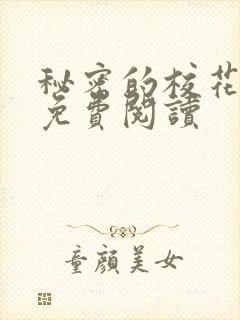 秘密的校花
免費閱讀
童顏美女